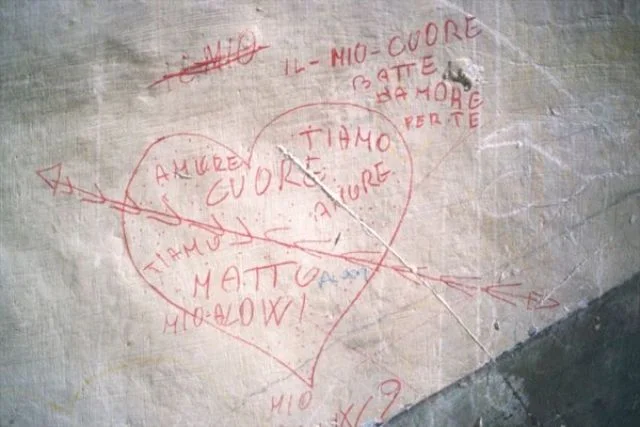 IL MIO
IL-MIO-CUORE
BATTE
DAMORE
PER TE
TIAMO
AMORE
CUORE
TIAMO
MATTO
MIO